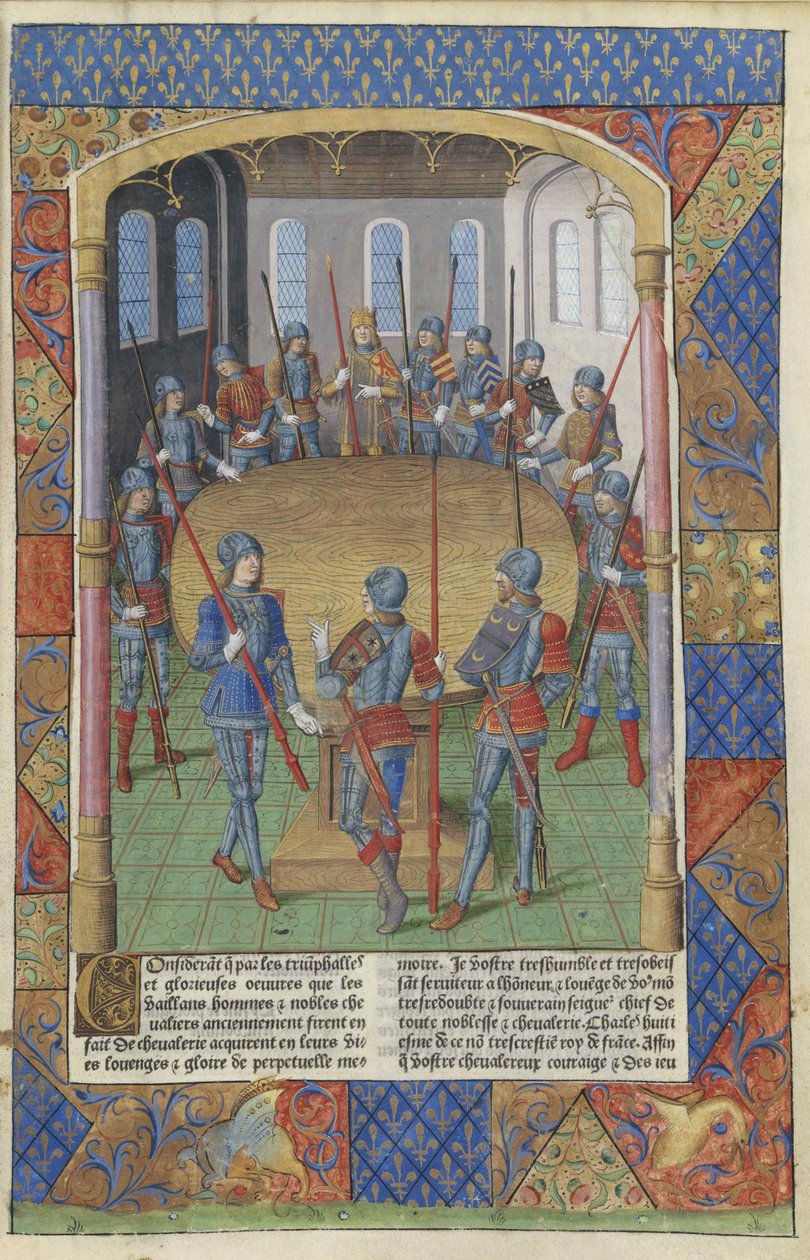 Onsiderāt q̄ par les triūphalles
et glorieuses oeuures que les
vaillans hommes ⁊ nobles che
ualiers anciennement firent en
fait de cheualerie acquirent en leurs vi⸗
es louenges ⁊ gloire de perpetuelle me⸗
moire. Je vostre treshumble et tresobeis
sāt seruiteur a lhōneur ⁊ louēge de vo⁹ mō
tresredoubte ⁊ souuerain seigueʳ chief de
toute noblesse ⁊ cheualerie. Charles huiti
esme de ce nō trescrestiē roy de frāce. Affin
q̄ vostre cheualereux couraige ⁊ des ieu